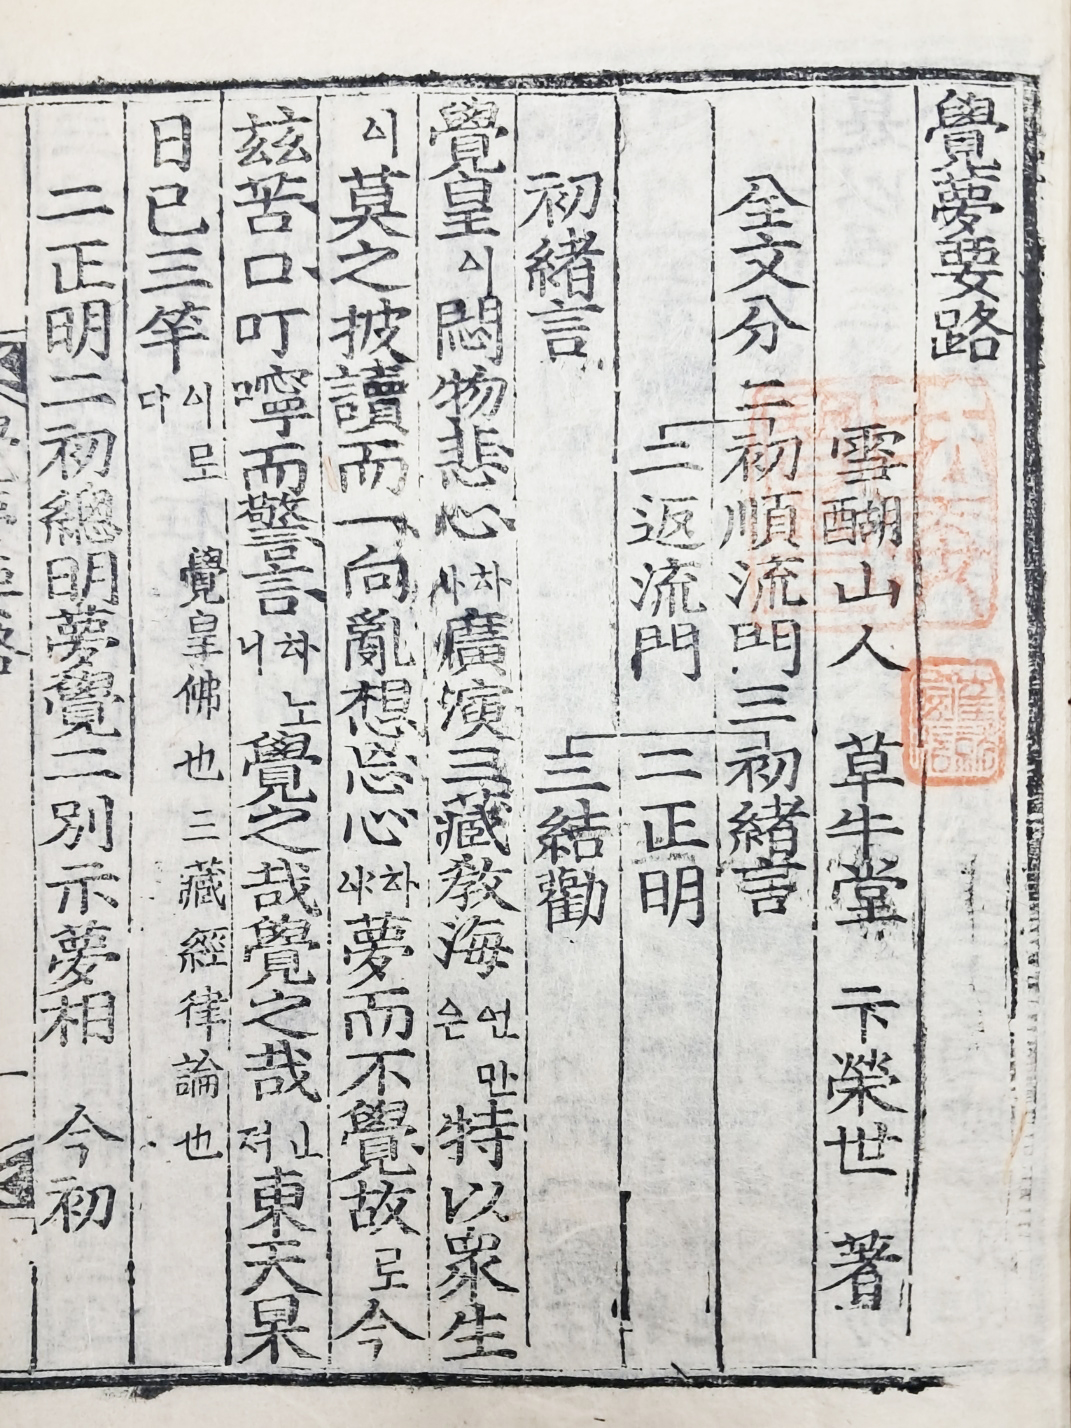 覺夢要路
雪醐山人 草牛堂 卞榮世 著
全文分二初順流門三初緒言
二返流門 二正明
三結勸
初緒言
覺皇이悶物悲心하사廣演三藏敎海언만은特以衆生
이莫之披讀而一向亂想忘心하야夢而不覺故로今
玆苦口叮嚀而警言하노니覺之哉覺之哉인저東天杲
日已三竿이로다 覺皇佛也三藏經律論也
二正明二初總明夢覺二別示夢相 今初